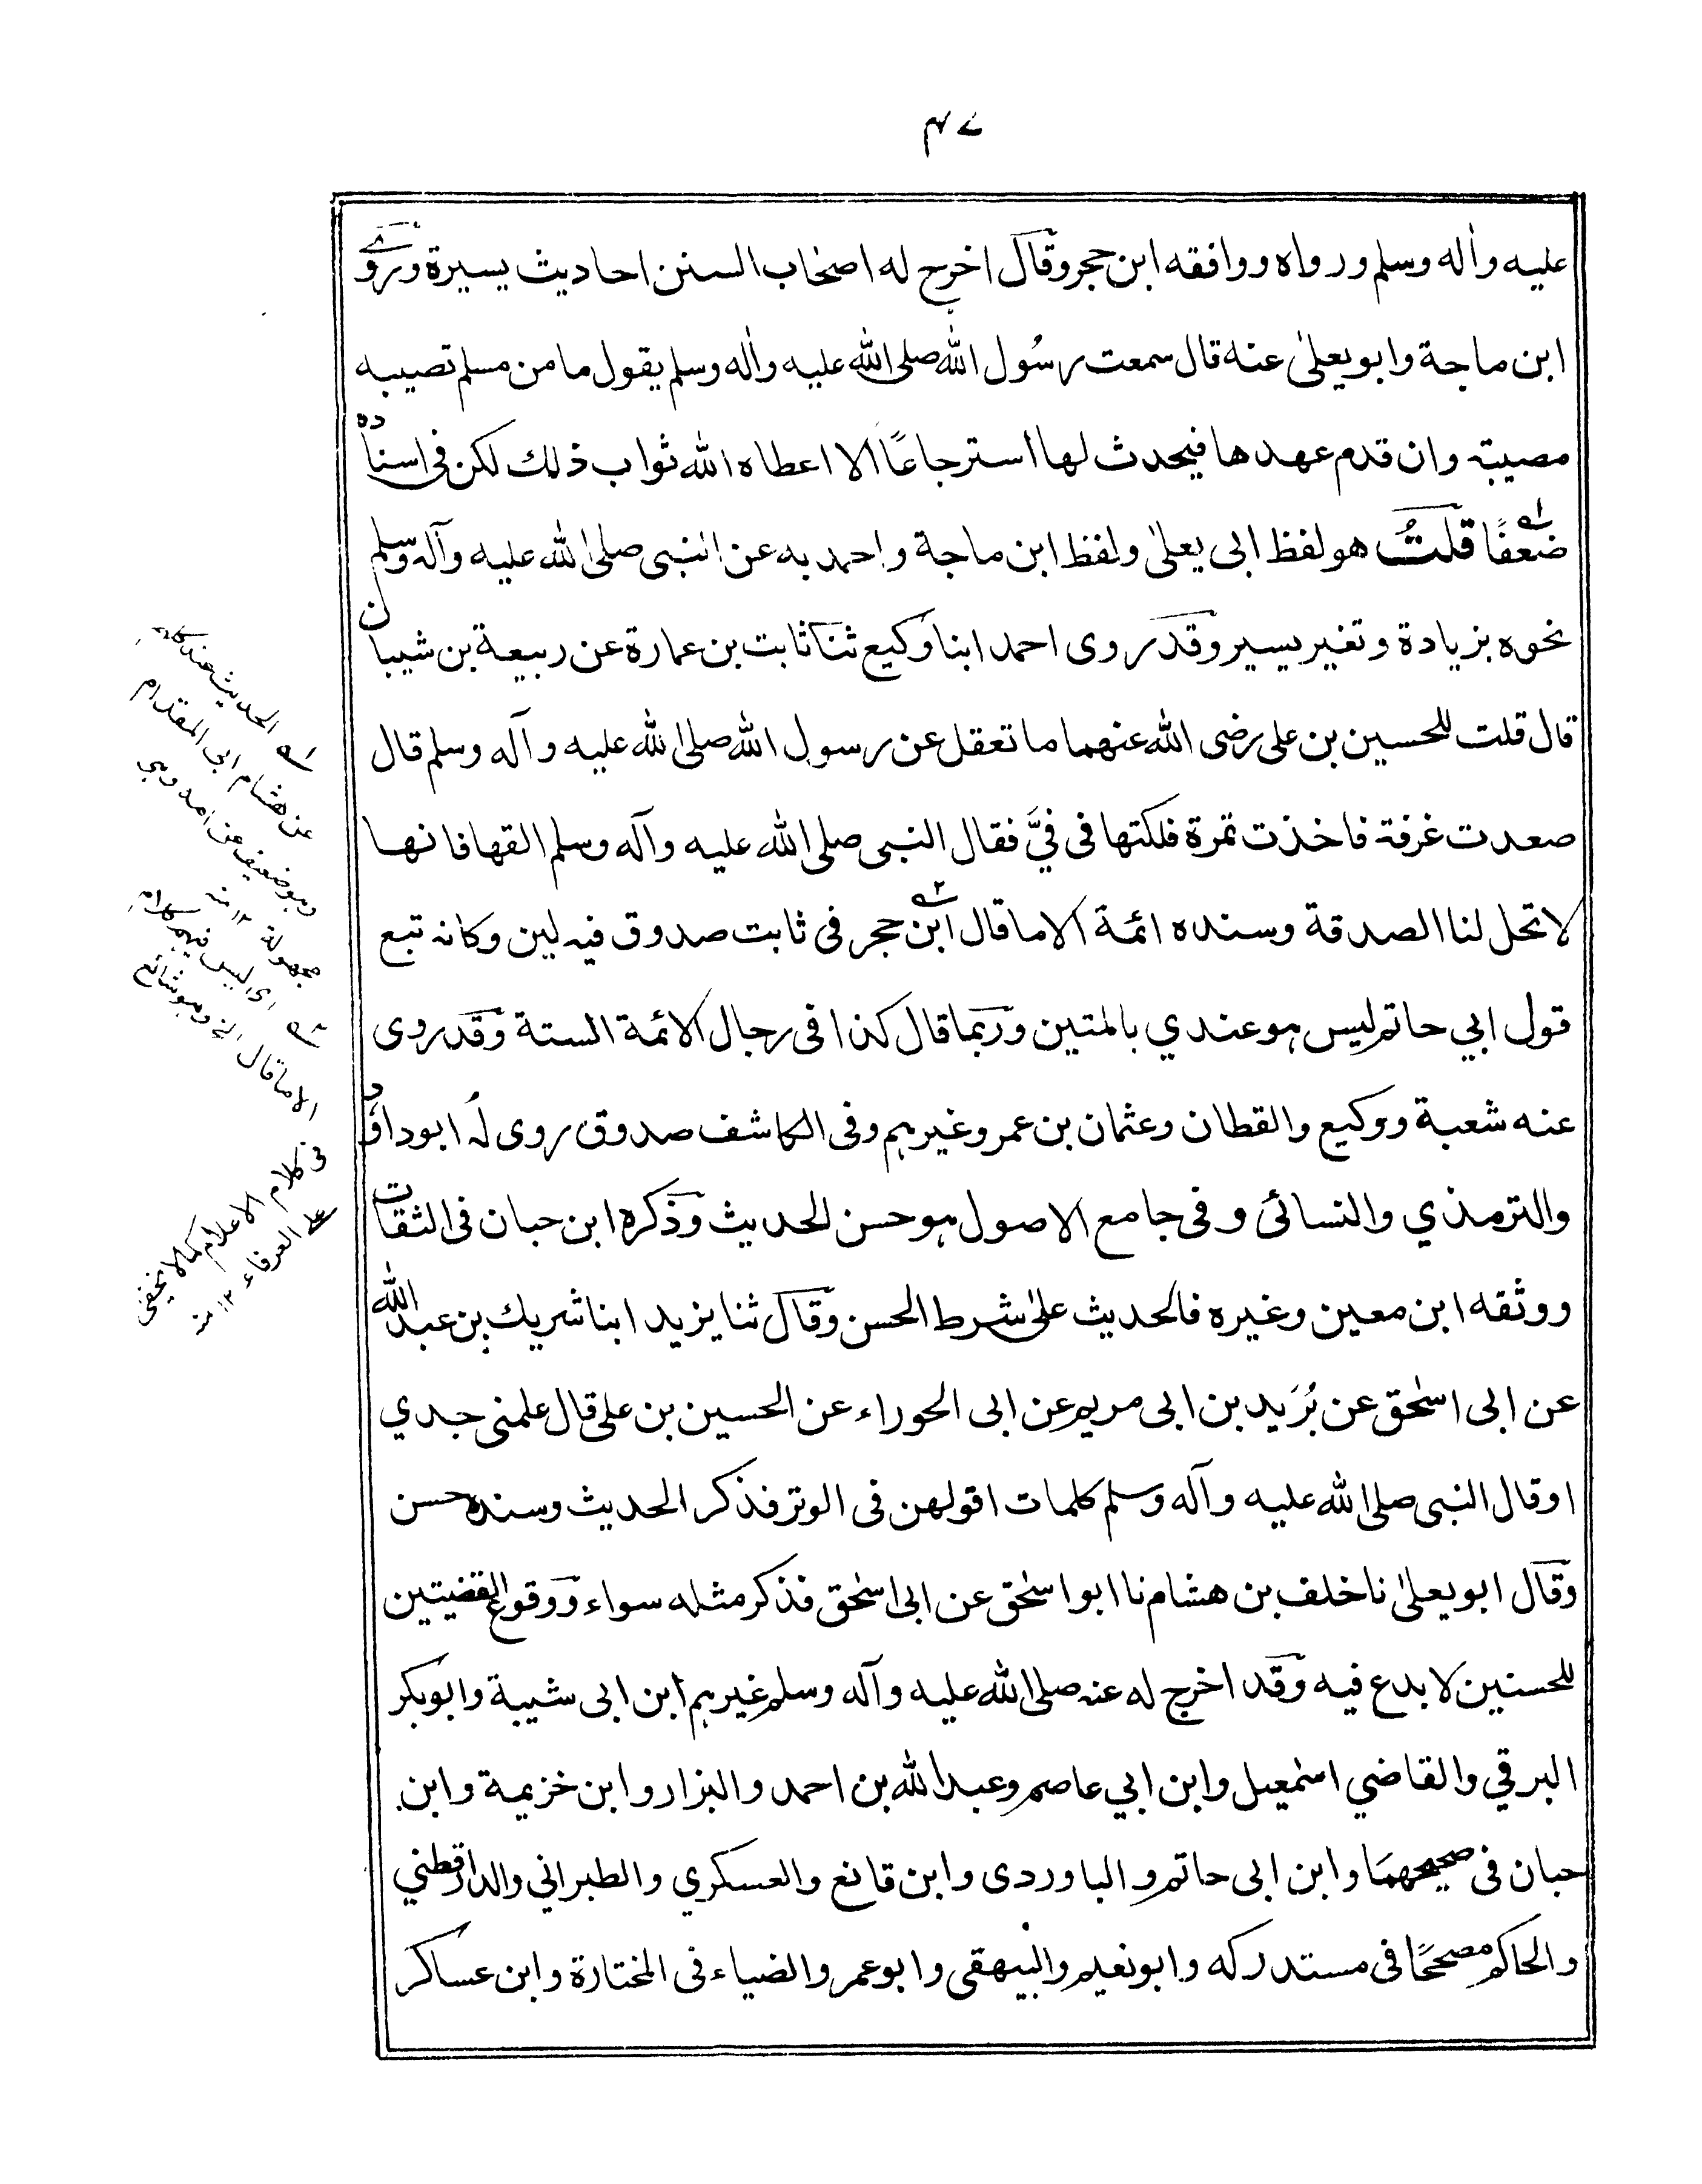 ٤٧
عليه واٰله وسلم ورواه ووافقه ابن حجر وقال اخرج له اصحاب السنن احاديث يسيرة وروى
ابن ماجة وابو يعلىٰ عنه قال سمعت رسُول الله صلى الله عليه واٰله وسلم يقول ما من مسلم تصيبه
مصيبة وان قدم عهدها فيحدث لها استرجاعًا الا اعطاه الله ثواب ذلك لكن فى اسناده
ضعفًا قلتُ هو لفظ ابى يعلىٰ ولفظ ابن ماجة واحمد به عن النبى صلى الله عليه وآله وسلم
نحوه بزيادة وتغير يسير وقد روى احمد ابنا وكيع ثنا ثابت بن عمارة عن ربيعة بن شيبان
قال قلت للحسين بن على رضى الله عنهما ما تعقل عن رسول الله صلى الله عليه وآله وسلم قال
صعدت غرفة فاخذت تمرة فلكتها فى فيَّ فقال النبى صلى الله عليه وآله وسلم القها فانها
لا تحل لنا الصدقة وسنده ائمة الا ما قال ابن حجر فى ثابت صدوق فيه لين وكانه تبع
قول ابي حاتم ليس هو عندي بالمتين وربما قال كذا فى رجال الائمة الستة وقد روى
عنه شعبة ووكيع والقطان وعثمان بن عمر وغيرهم وفى الكاشف صدوق روى لهُ ابو داؤد
والترمذي والنسائى وفى جامع الاصول هو حسن الحديث وذكره ابن حبان فى الثقات
ووثقه ابن معين وغيره فالحديث علىٰ شرط الحسن وقال ثنا يزيد ابنا شريك بن عبد الله
عن ابى اسحٰق عن بُرَيد بن ابى مريم عن ابى الحوراء عن الحسين بن على قال علمنى جدي
او قال النبى صلى الله عليه وآله وسلم كلمات اقولهن فى الوتر فذكر الحديث وسنده حسن
وقال ابو يعلىٰ نا خلف بن هشام نا ابو اسحٰق عن ابى اسحٰق فذكر مثله سواء ووقوع القضيتين
للحسنين لا بدع فيه وقد اخرج له عنه صلى الله عليه وآله وسلم غيرهم ابن ابى شيبة وابو بكر
البرقي والقاضي اسمٰعيل وابن ابي عاصم وعبد الله بن احمد والبزار وابن خزيمة وابن
حبان فى صحيحهما وابن ابى حاتم والباوردى وابن قانع والعسكري والطبراني والدارقطني
والحاكم مصححًا فى مستدركه وابو نعيم والبيهقى وابو عمر والضياء فى المختارة وابن عساكر
١ الحديث عند
عن هشام ابى المقدام
وهو ضعيف عن امه وهى
مجهولة ١٢ منه
٢ اى ليس فيهم كلام
الا ما قال الخ وهو شائع
فى كلام الاعلام كما لا يخفى
على العرفاء ١٢ منه